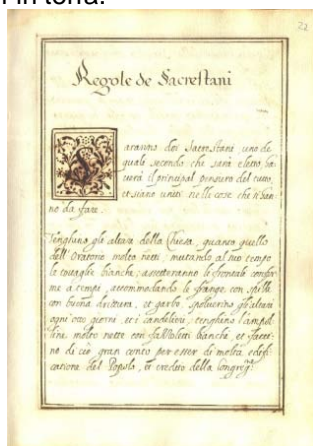 in terra.
22
Regole de Sacrestani
Saranno dei Sacrestani uno de
quali secondo che sarà eletto, ha
uerà il principal pensiero del tutto,
et siano uniti nelle cose che si han
no da fare.
Tenghano gli altari della Chiesa, quanto quello
dell'Oratorio molto netti, mutando al suo tempo
le touaglie bianche, assetteranno le frontale confor
me à tempi, accommodando le frange con spille
con buona drittura, et garbo, spoluerino gl'altari
ogni otto giorni, et i candelieri, tenghano l'ampol
line molto nette con fazzoletti bianchi, et facci
no di ciò gran conto per esser di molta edifi
catione del Popolo, et credito della Congreg.